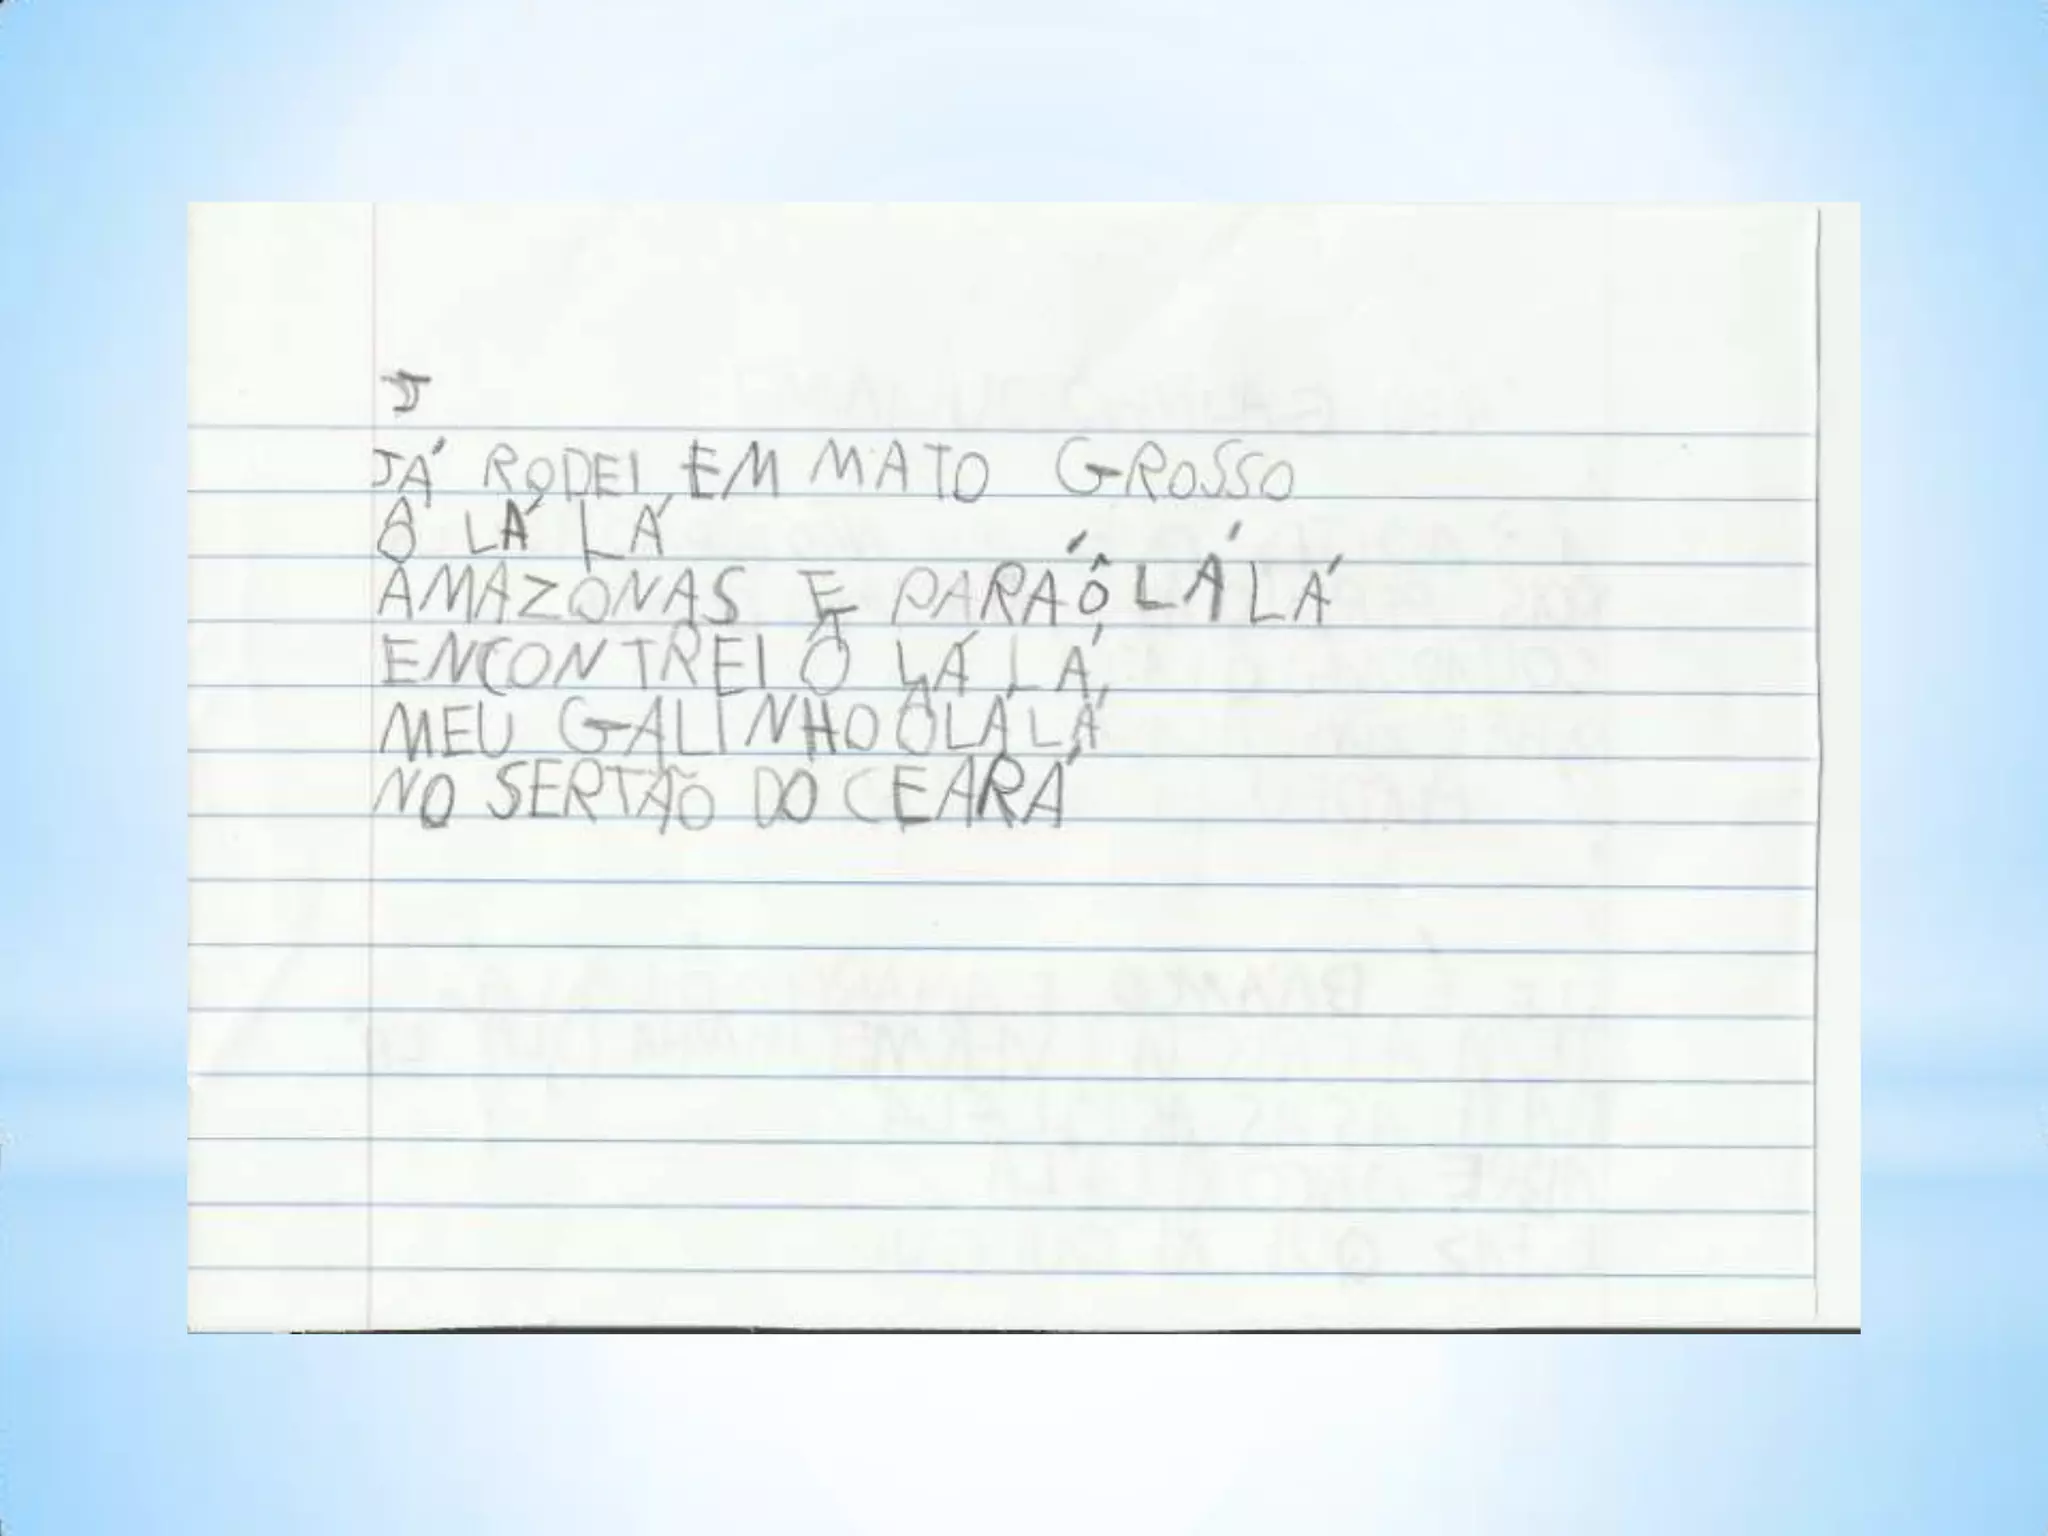 J
JÁ RODEI EM MATO GROSSO
Ô LÁ LÁ
AMAZONAS E PARÁ Ô LÁ LÁ
ENCONTREI Ô LÁ LÁ
MEU GALINHO Ô LÁ LÁ
NO SERTÃO DO CEARÁ